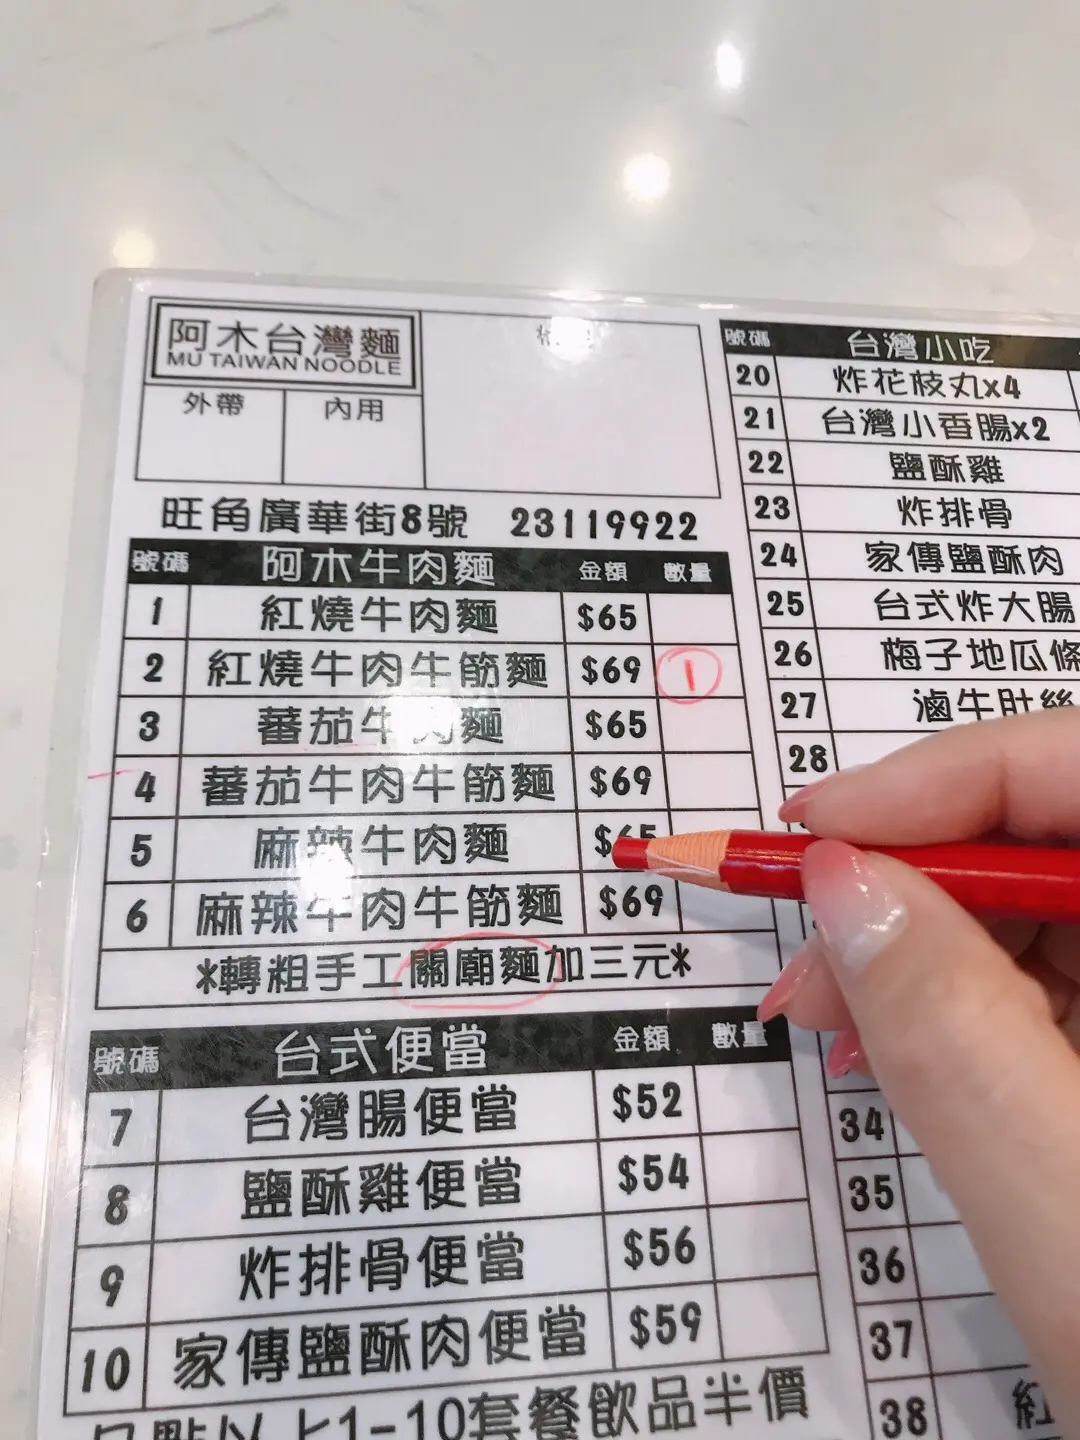 阿木台灣麵
MU TAIWAN NOODLE
外帶 內用
旺角廣華街8號 23119922
號碼 阿木牛肉麵 金額 數量
1 紅燒牛肉麵 $65
2 紅燒牛肉牛筋麵 $69 1
3 蕃茄牛肉麵 $65
4 蕃茄牛肉牛筋麵 $69
5 麻辣牛肉麵 $65
6 麻辣牛肉牛筋麵 $69
*轉粗手工關廟麵加三元*
號碼 台式便當 金額 數量
7 台灣腸便當 $52
8 鹽酥雞便當 $54
9 炸排骨便當 $56
10 家傳鹽酥肉便當 $59
點以上1-10套餐飲品半價
號碼 台灣小吃
20 炸花枝丸x4
21 台灣小香腸x2
22 鹽酥雞
23 炸排骨
24 家傳鹽酥肉
25 台式炸大腸
26 梅子地瓜條
27 滷牛肚絲
28
34
35
36
37
38 紅